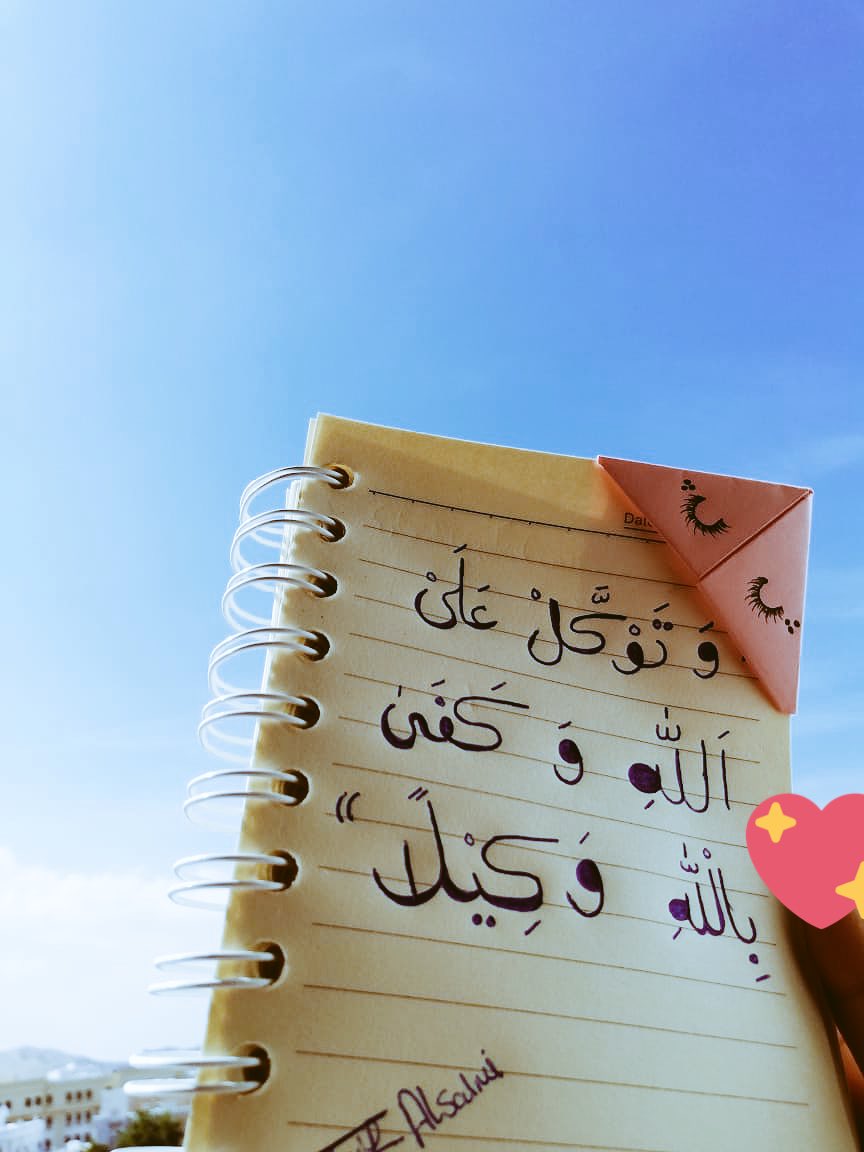 Date
وَ تَوْكَّلْ عَلَىْ
اَللَّهِ وَ كَفَىَ
بِاللَّهِ وَكِيْلاً “
Alsalmi